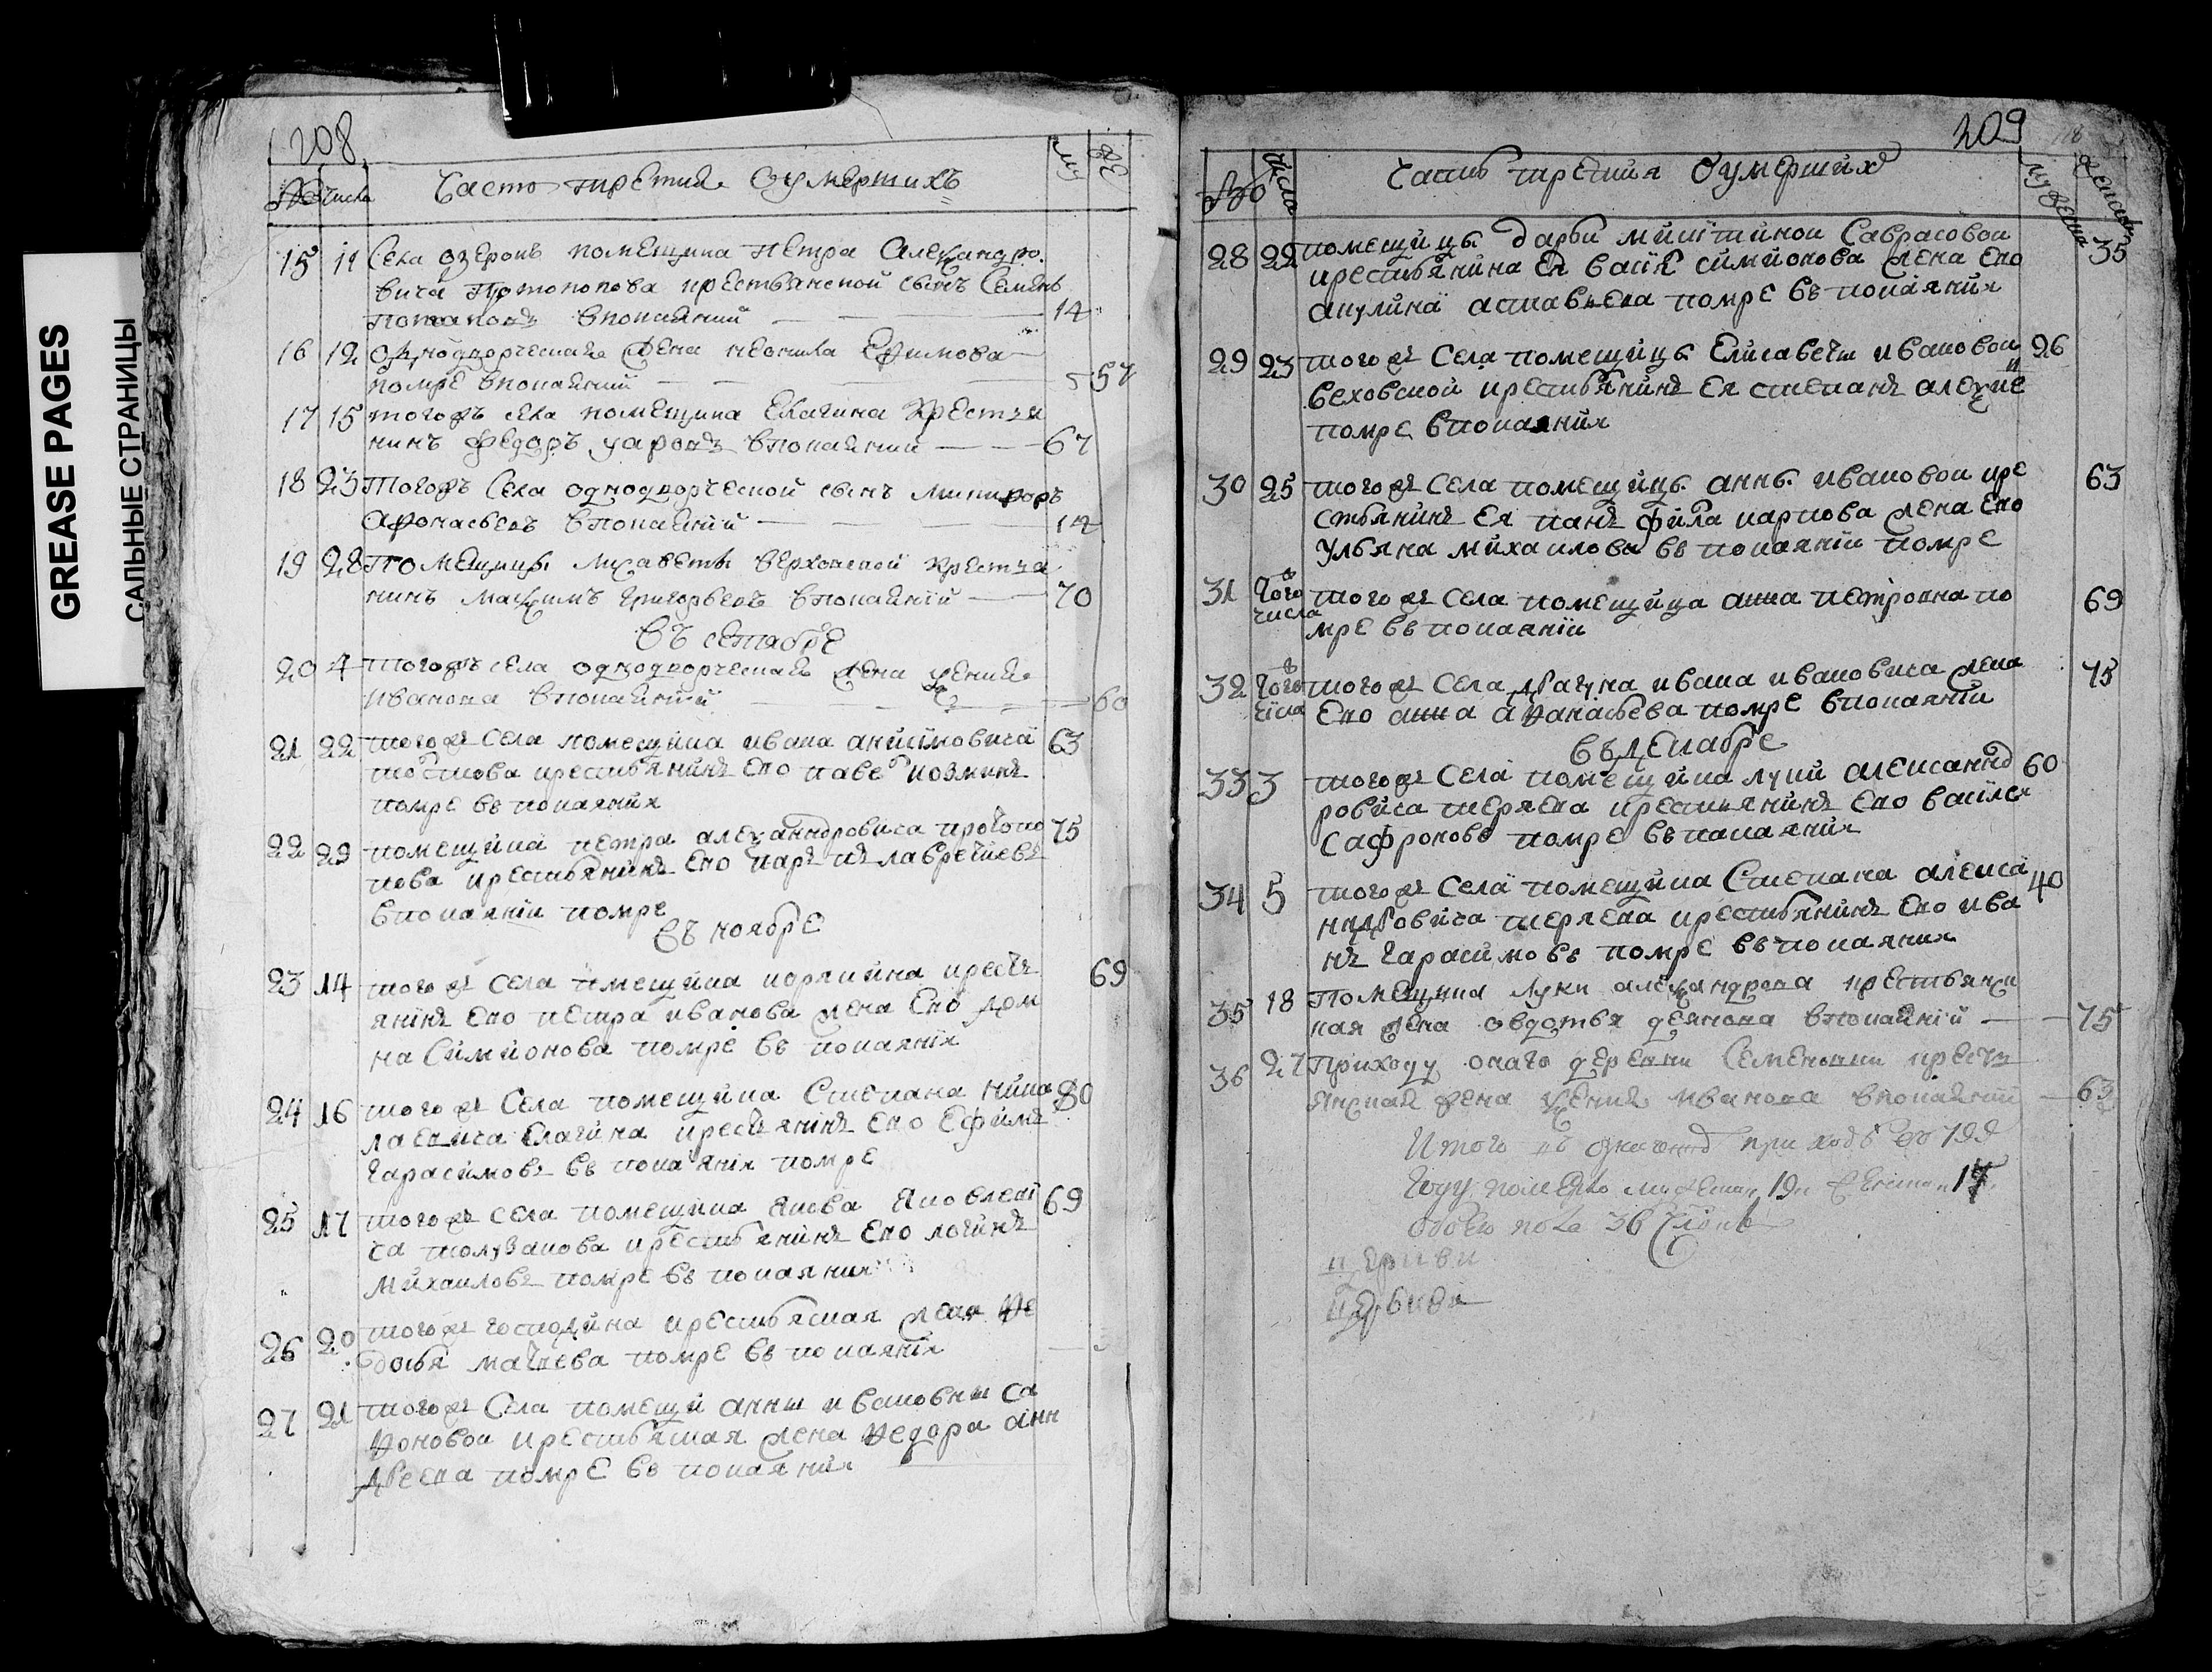 GREASE PAGES
САЛЬНЫЕ СТРАНИЦЫ
208
№ числа Часть третия оумершихъ му же
15 11 Села озерокъ помещика Петра Александро
вича Протопопова крестьянской сынъ Семенъ
Потаповъ впокаянии 14
16 12 однодворческая жена неонила Ефимова
помре впокаянии 57
17 15 тогожъ села помещика Елагина крестья
нинъ федоръ уаровъ впокаянии 67
18 23 Тогожъ Села однодворческой сынъ Никифоръ
Афонасьевъ впокаянии 14
19 28 Помещицы Лисаветы верховской крестья
нинъ Максимъ Григорьевъ впокаянии 70
въ сентябре
20 4 тогожъ села однодворческая жена ксения
Иванова впокаянии 60
21 22 тогожъ Села помещика ивана анисимовича 63
крестьянинъ Ево павелъ козминъ
помре въ покаянии
22 29 помещика петра александровича протопо 75
пова крестьянинъ Ево карпъ лаврентиевъ
впокаянии помре
въ ноябре
23 14 тогожъ Села помещика крестъ 69
янинъ Ево петра иванова жена Ево дом
на Симионова помре въ покаянии
24 16 тогожъ Села помещика Степана нико 80
лаевича Елагина крестьянинъ Ево Ефимъ
Гарасимовъ въ покаянии помре
25 17 тогожъ села помещика якова яковлеви 69
ча крестьянинъ Ево логинъ
михаиловъ помре въ покаянии
26 20 тогожъ господина крестьяская жена фе
досья матвева помре въ покаянии
27 21 тогожъ Села помещи анны ивановны са
фоновои крестьяская жена федора анн
дреева помре въ покаянии
209
№ числа Часть третия оумерших мужеска женска
28 22 помещицы дарьи никитинои Саврасовои 35
крестьянина Ея васил симионова жена Ево
акулина астафьева помре въ покаянии
29 23 тогожъ Села помещицы Елисаветы ивановои 26
веховской крестьянинъ Ея степанъ алексие
помре впокаянии
30 25 тогожъ Села помещицы анны ивановои кре 63
стьянинъ Ея фила карпова жена Ево
ульяна михаилова въ покаянии помре
31 того числа тогожъ села помещица анна петровна по 69
мре въ покаянии
32 того числа тогожъ Села ивана ивановича жена 75
Ево анна афанасьева помре впокаянии
въ декабре
33 3 тогожъ Села помещика луки александ 60
ровича теряева крестьянинъ Ево василеи
Сафроновъ помре въ пакаянии
34 5 тогожъ Села помещика Степана алекса 40
нидровича теряева крестьянинъ Ево ива
нъ Гарасимовъ помре въ покаянии
35 18 Помещика луки александрова крестьянс
кая жена овдотья деянова впокаянии 75
36 27 Приходу онаго деревни Семеновки крестъ
янская жена ксения иванова впокаянии 63
Итого въ приходѣ
году померло мужеска 19 женска 17
обоего пола 36
церкви